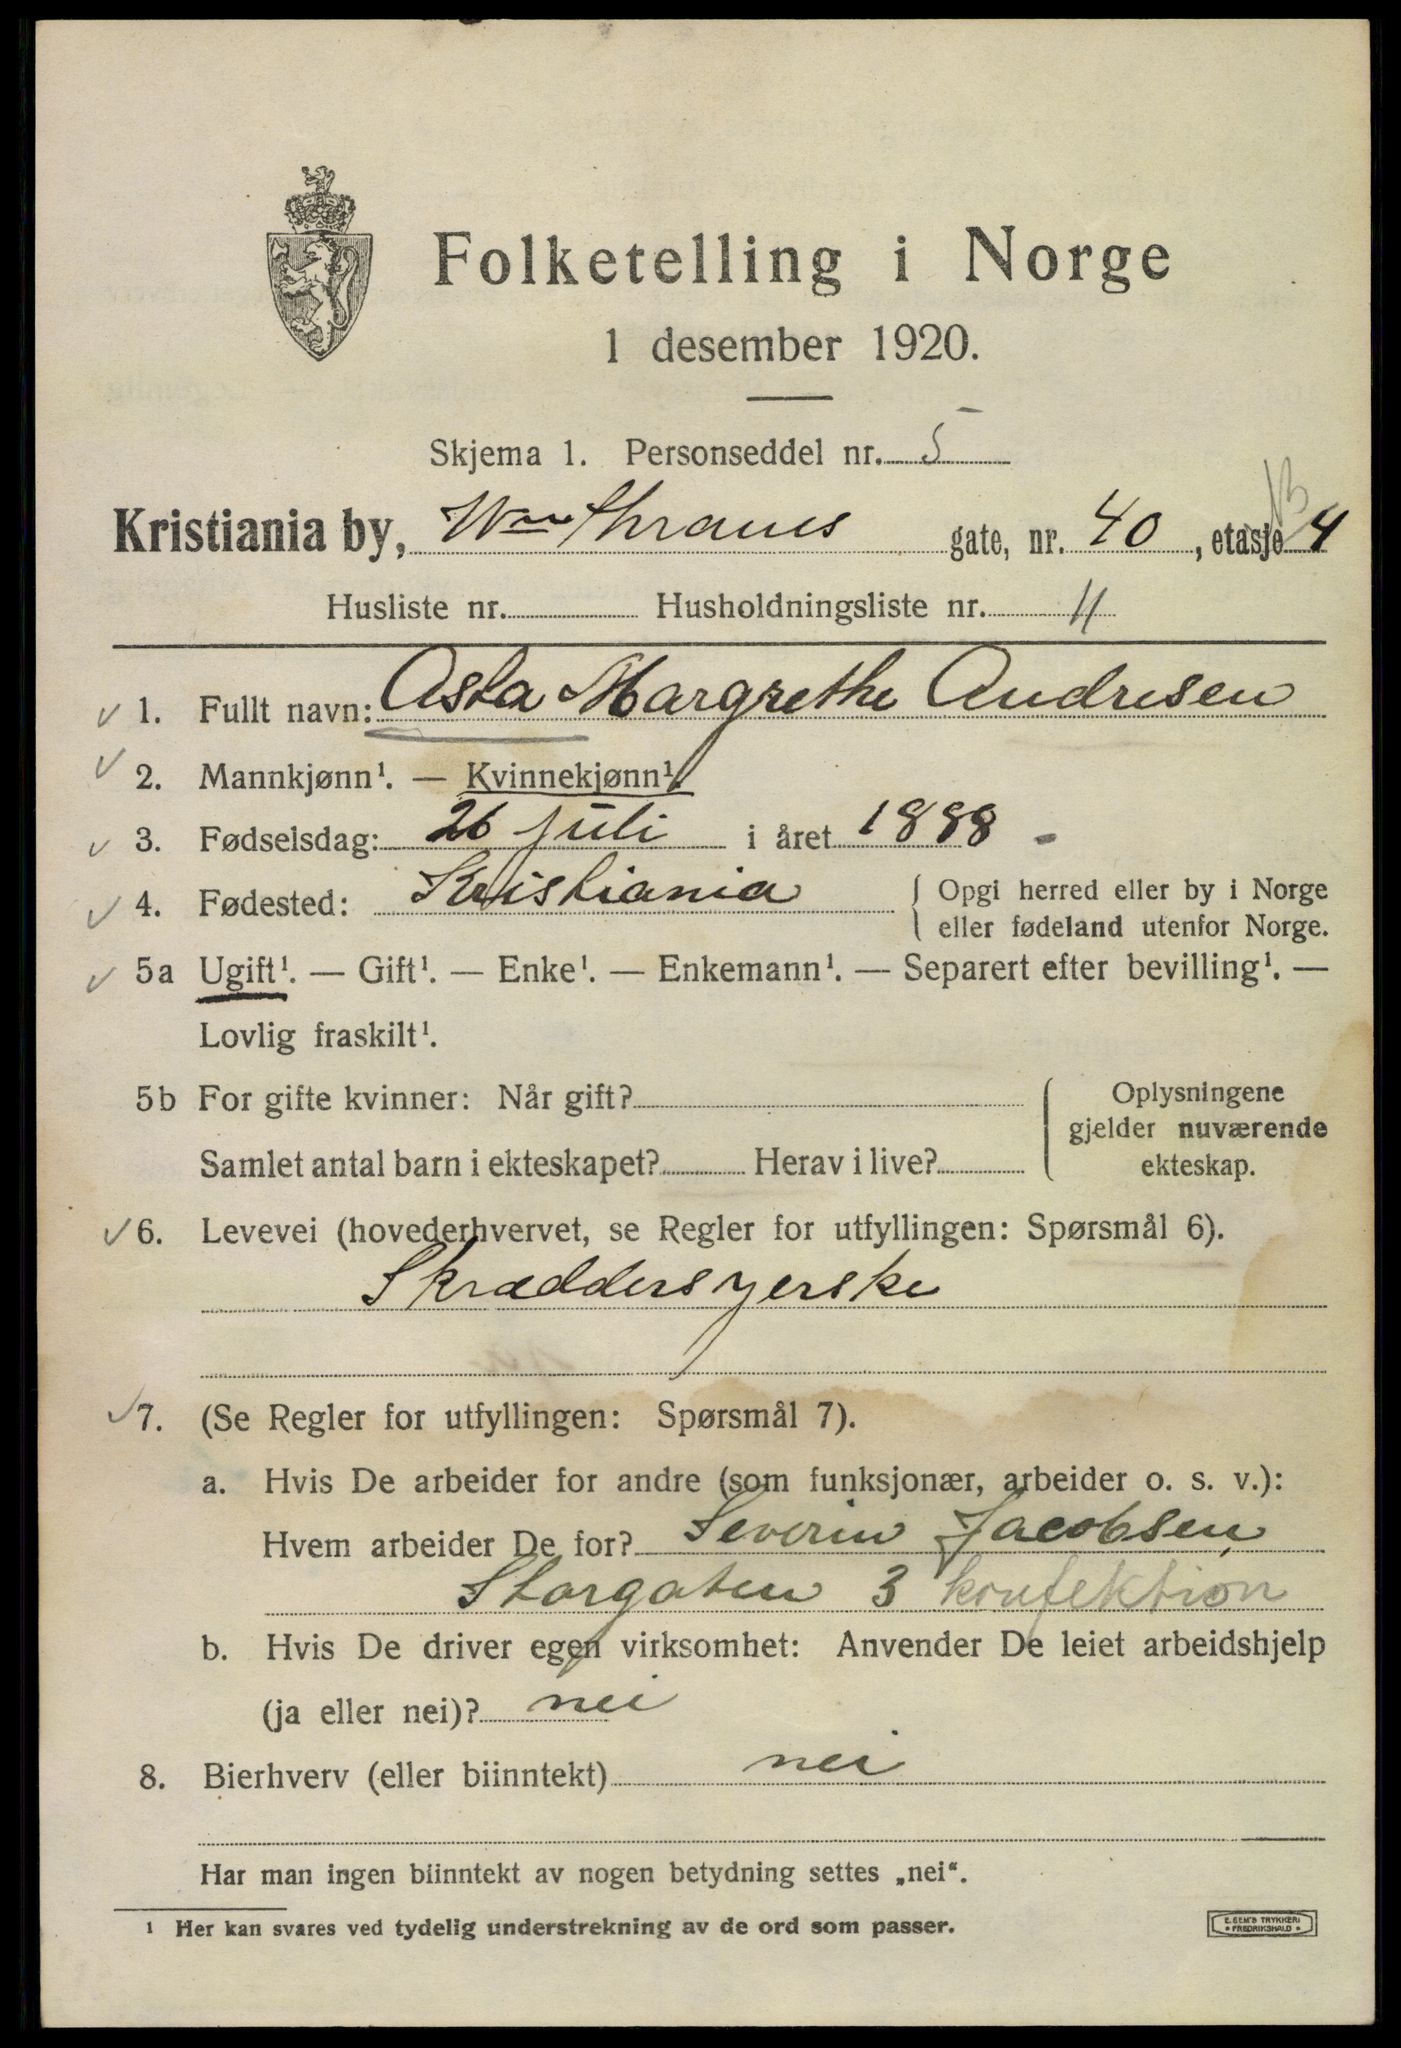 Folketelling i Norge
1 desember 1920.
Skjema 1. Personseddel nr. 5
Kristiania by, Wm Thranes gate, nr. 40, etasje 4
Husliste nr. Husholdningsliste nr. 11
1. Fullt navn: Asta Margrethe Andresen
2. Mannkjønn¹. — Kvinnekjønn¹.
3. Fødselsdag: 26 juli i året 1888
4. Fødested: Kristiania { Opgi herred eller by i Norge
eller fødeland utenfor Norge.
5a Ugift¹. — Gift¹. — Enke¹. — Enkemann¹. — Separert efter bevilling¹. —
Lovlig fraskilt¹.
5b For gifte kvinner: Når gift? { Oplysningene
gjelder nuværende
Samlet antal barn i ekteskapet? Herav i live? ekteskap.
6. Levevei (hovederhvervet, se Regler for utfyllingen: Spørsmål 6).
Skræddersyerske
7. (Se Regler for utfyllingen: Spørsmål 7).
a. Hvis De arbeider for andre (som funksjonær, arbeider o. s. v.):
Hvem arbeider De for? Severin Jacobsen,
Storgaten 3 konfektion
b. Hvis De driver egen virksomhet: Anvender De leiet arbeidshjelp
(ja eller nei)? nei
8. Bierhverv (eller biinntekt) nei
Har man ingen biinntekt av nogen betydning settes „nei“.
¹ Her kan svares ved tydelig understrekning av de ord som passer.
E. SEM'S TRYKKERI
FREDRIKSHALD